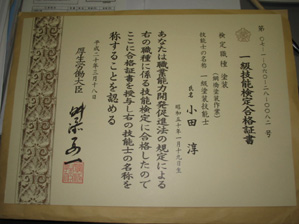 第〇七-一-〇六〇-二八-〇〇八二号
一級技能検定合格証書
検定職種 塗装
（鋼橋塗装作業）
技能士の名称 一級塗装技能士
氏名 小田 淳
昭和五十年一月十九日生
あなたは職業能力開発促進法の規定による
右の職種に係る技能検定に合格したので
ここに合格証書を授与し右の技能士の名称を
称することを認める
平成二十年三月十八日
厚生労働大臣